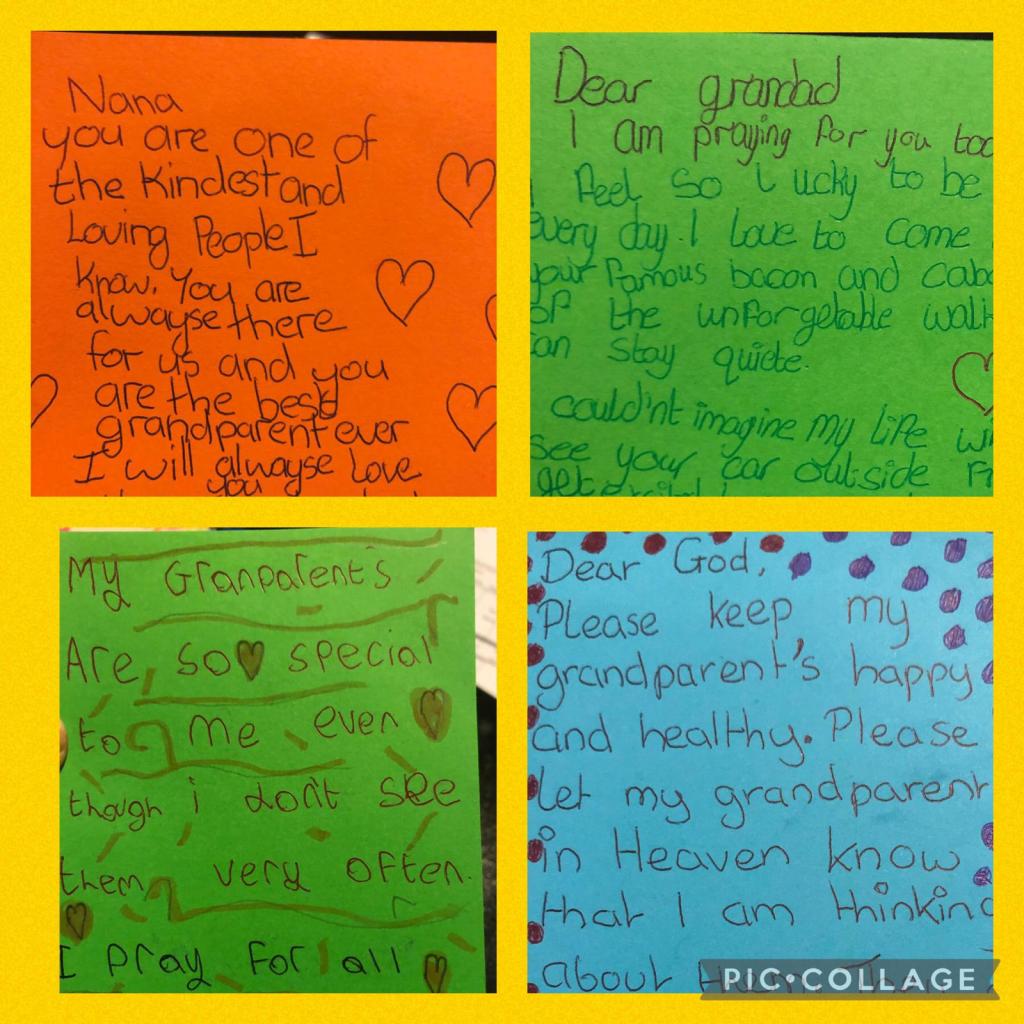 Nana
you are one of
the Kindest and
Loving People I
Know. You are
alwayse there
for us and you
are the best
grandparent ever
I will alwayse Love
you
Dear grandad
I am praying for you
I feel so lucky to be
every day. I love to come
your famous bacon and
of the unforgetable
stay quiete.
could'nt imagine my life
see your car outside
My Granparent's
Are so special
to me even
though i don't see
them very often.
I pray for all
Dear God,
Please keep my
grandparent's happy
and healthy. Please
let my grandparent
in Heaven know
that I am
about
PIC•COLLAGE